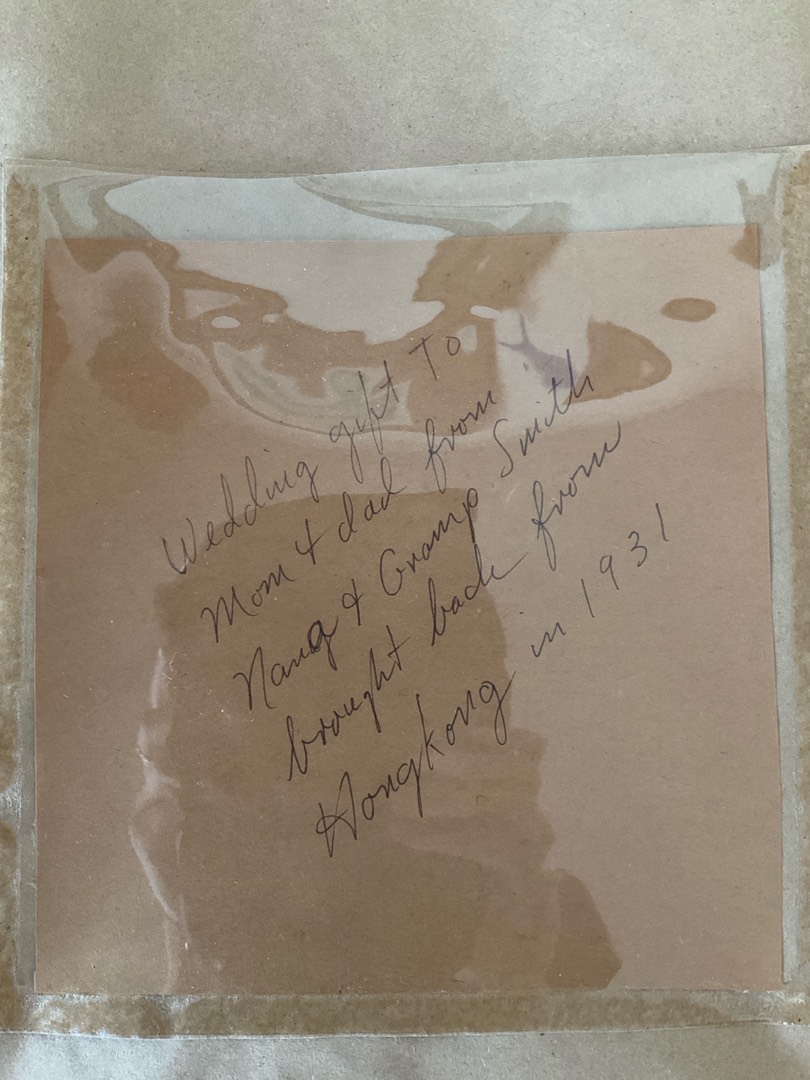 Wedding gift To
Mom & dad from
Nana & Gramp Smith
brought back from
Hongkong in 1931